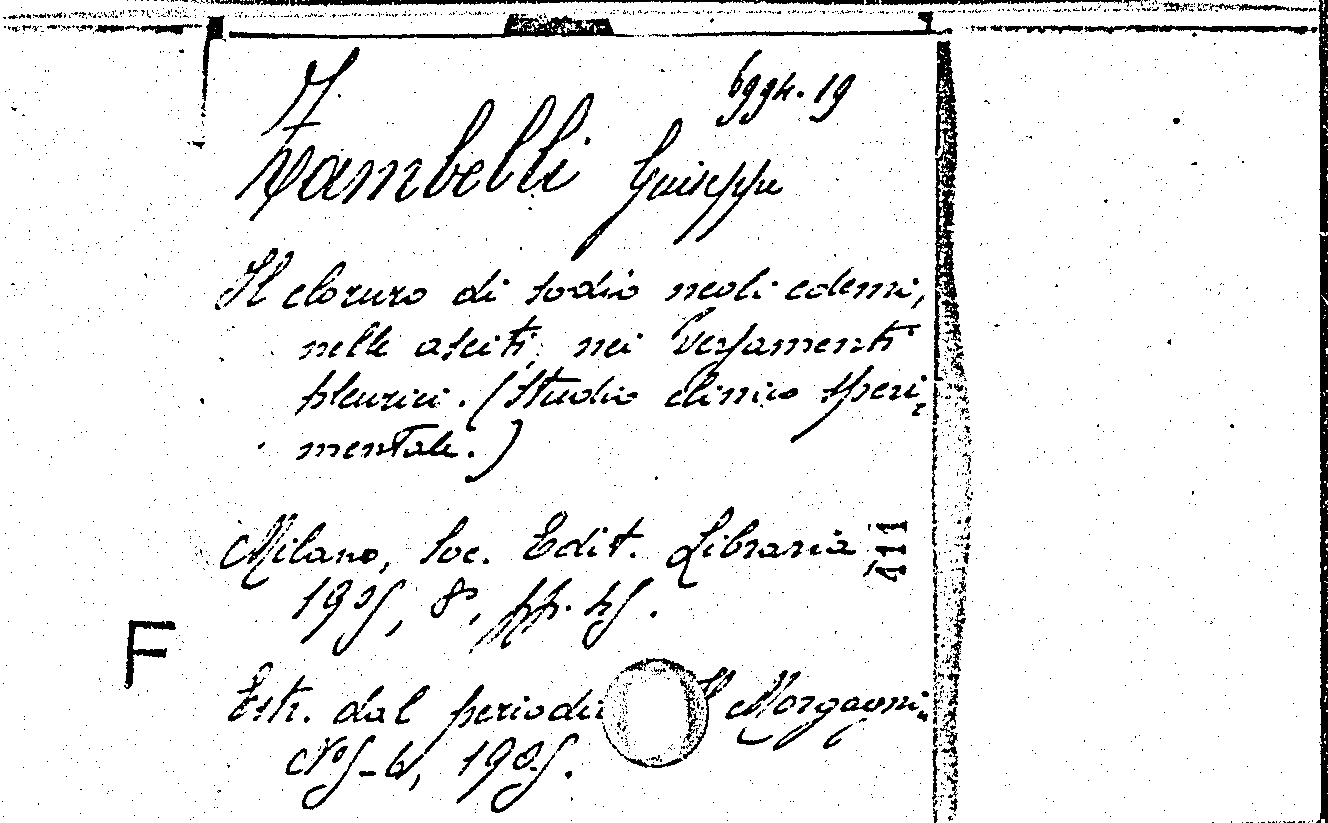 6994.19
Zambelli Giuseppe
Il cloruro di sodio negli edemi,
nelle asciti, nei versamenti
pleurici. (Studio clinico speri-
mentale.)
Milano, Soc. Edit. Libraria
1905, 8°, pp. 45.
111
F
Estr. dal periodico Il Morgagni.
N° 5-6, 1905.